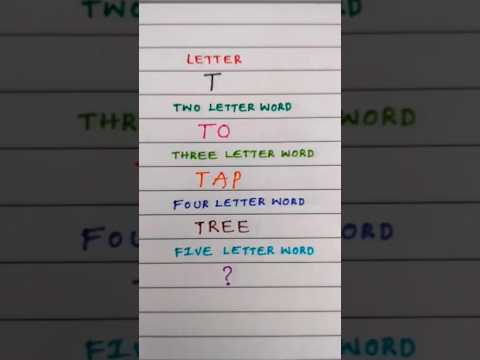 LETTER
T
TWO LETTER WORD
TO
THREE LETTER WORD
TAP
FOUR LETTER WORD
TREE
FIVE LETTER WORD
?